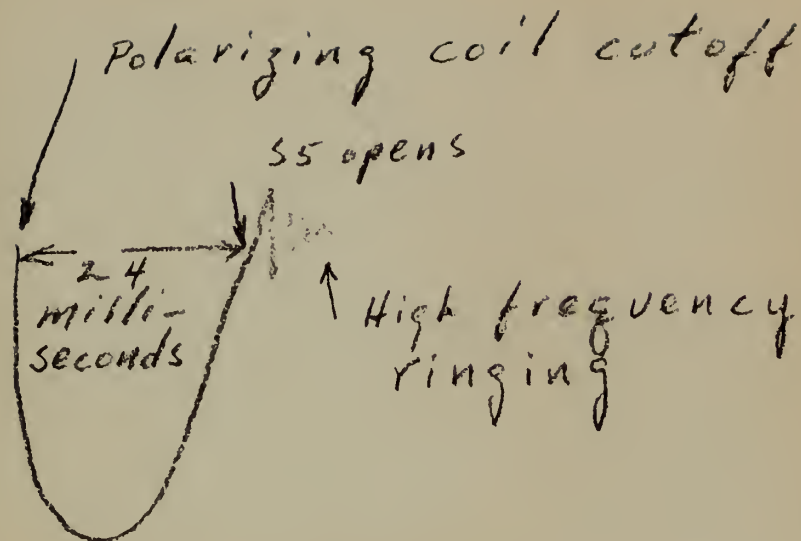 Polarizing coil cutoff
S5 opens
24
milli-
seconds
High frequency
ringing